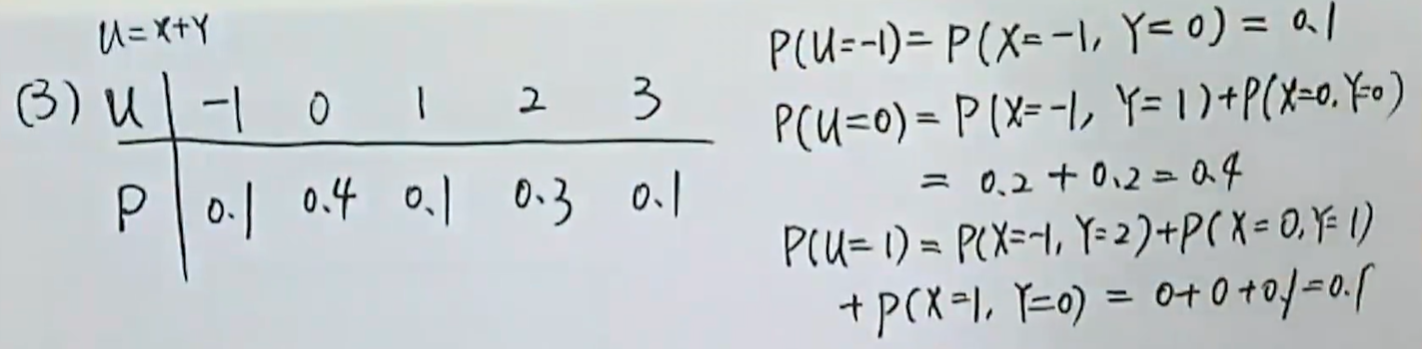 U=X+Y
(3) U | -1 0 1 2 3
P | 0.1 0.4 0.1 0.3 0.1
P(U=-1)=P(X=-1, Y=0)=0.1
P(U=0)=P(X=-1, Y=1)+P(X=0,Y=0)
=0.2+0.2=0.4
P(U=1)=P(X=-1, Y=2)+P(X=0,Y=1)
+P(X=1, Y=0)=0+0+0.1=0.1